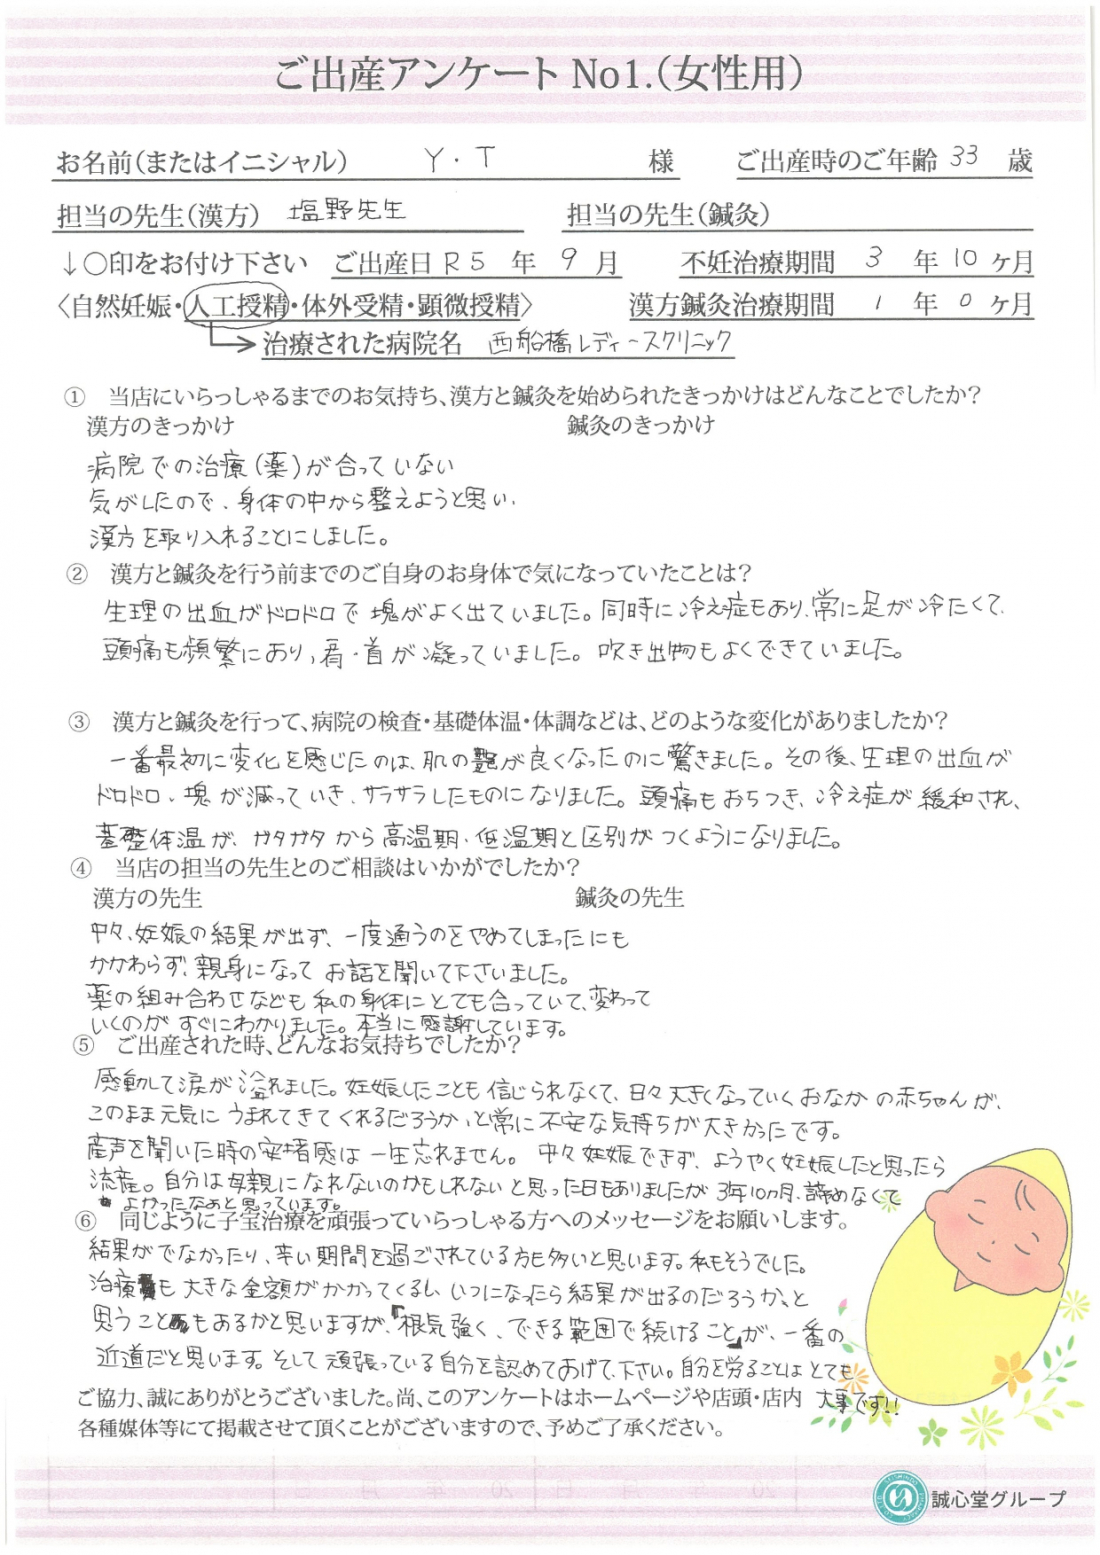 ご出産アンケート No1.(女性用)
お名前(またはイニシャル) Y・T 様 ご出産時のご年齢 33 歳
担当の先生(漢方) 塩野先生 担当の先生(鍼灸)
↓○印をお付け下さい ご出産日 R5 年 9 月 不妊治療期間 3 年 10 ヶ月
〈自然妊娠・人工授精・体外受精・顕微授精〉 漢方鍼灸治療期間 1 年 0 ヶ月
治療された病院名 西船橋レディースクリニック
① 当店にいらっしゃるまでのお気持ち、漢方と鍼灸を始められたきっかけはどんなことでしたか?
漢方のきっかけ 鍼灸のきっかけ
病院での治療(薬)が合っていない
気がしたので、身体の中から整えようと思い、
漢方を取り入れることにしました。
② 漢方と鍼灸を行う前までのご自身のお身体で気になっていたことは?
生理の出血がドロドロで塊がよく出ていました。同時に冷え症もあり、常に足が冷たくて、
頭痛も頻繁にあり、肩・首が凝っていました。吹き出物もよくできていました。
③ 漢方と鍼灸を行って、病院の検査・基礎体温・体調などは、どのような変化がありましたか?
一番最初に変化を感じたのは、肌の艶が良くなったのに驚きました。その後、生理の出血が
ドロドロ、塊が減っていき、サラサラしたものになりました。頭痛もおちつき、冷え症が緩和され、
基礎体温が、ガタガタから高温期・低温期と区別がつくようになりました。
④ 当店の担当の先生とのご相談はいかがでしたか?
漢方の先生 鍼灸の先生
中々、妊娠の結果が出ず、一度通うのをやめてしまったにも
かかわらず、親身になってお話を聞いて下さいました。
薬の組み合わせなども私の身体にとても合っていて、変わって
いくのがすぐにわかりました。本当に感謝しています。
⑤ ご出産された時、どんなお気持ちでしたか?
感動して涙が溢れました。妊娠したことも信じられなくて、日々大きくなっていくおなかの赤ちゃんが、
このまま元気にうまれてきてくれるだろうか、と常に不安な気持ちが大きかったです。
産声を聞いた時の安堵感は一生忘れません。中々妊娠できず、ようやく妊娠したと思ったら
流産。自分は母親になれないのかもしれないと思った日もありましたが3年10ヶ月、諦めなくて
よかったなぁと思っています。
⑥ 同じように子宝治療を頑張っていらっしゃる方へのメッセージをお願いします。
結果がでなかったり、辛い期間を過ごされている方も多いと思います。私もそうでした。
治療も大きな金額がかかってくるし、いつになったら結果が出るのだろうか、と
思うこともあるかと思いますが、「根気強く、できる範囲で続けること」が、一番の
近道だと思います。そして頑張っている自分を認めてあげて、下さい。自分を労ることはとても
大事です!!
ご協力、誠にありがとうございました。尚、このアンケートはホームページや店頭・店内
各種媒体等にて掲載させて頂くことがございますので、予めご了承ください。
誠心堂グループ